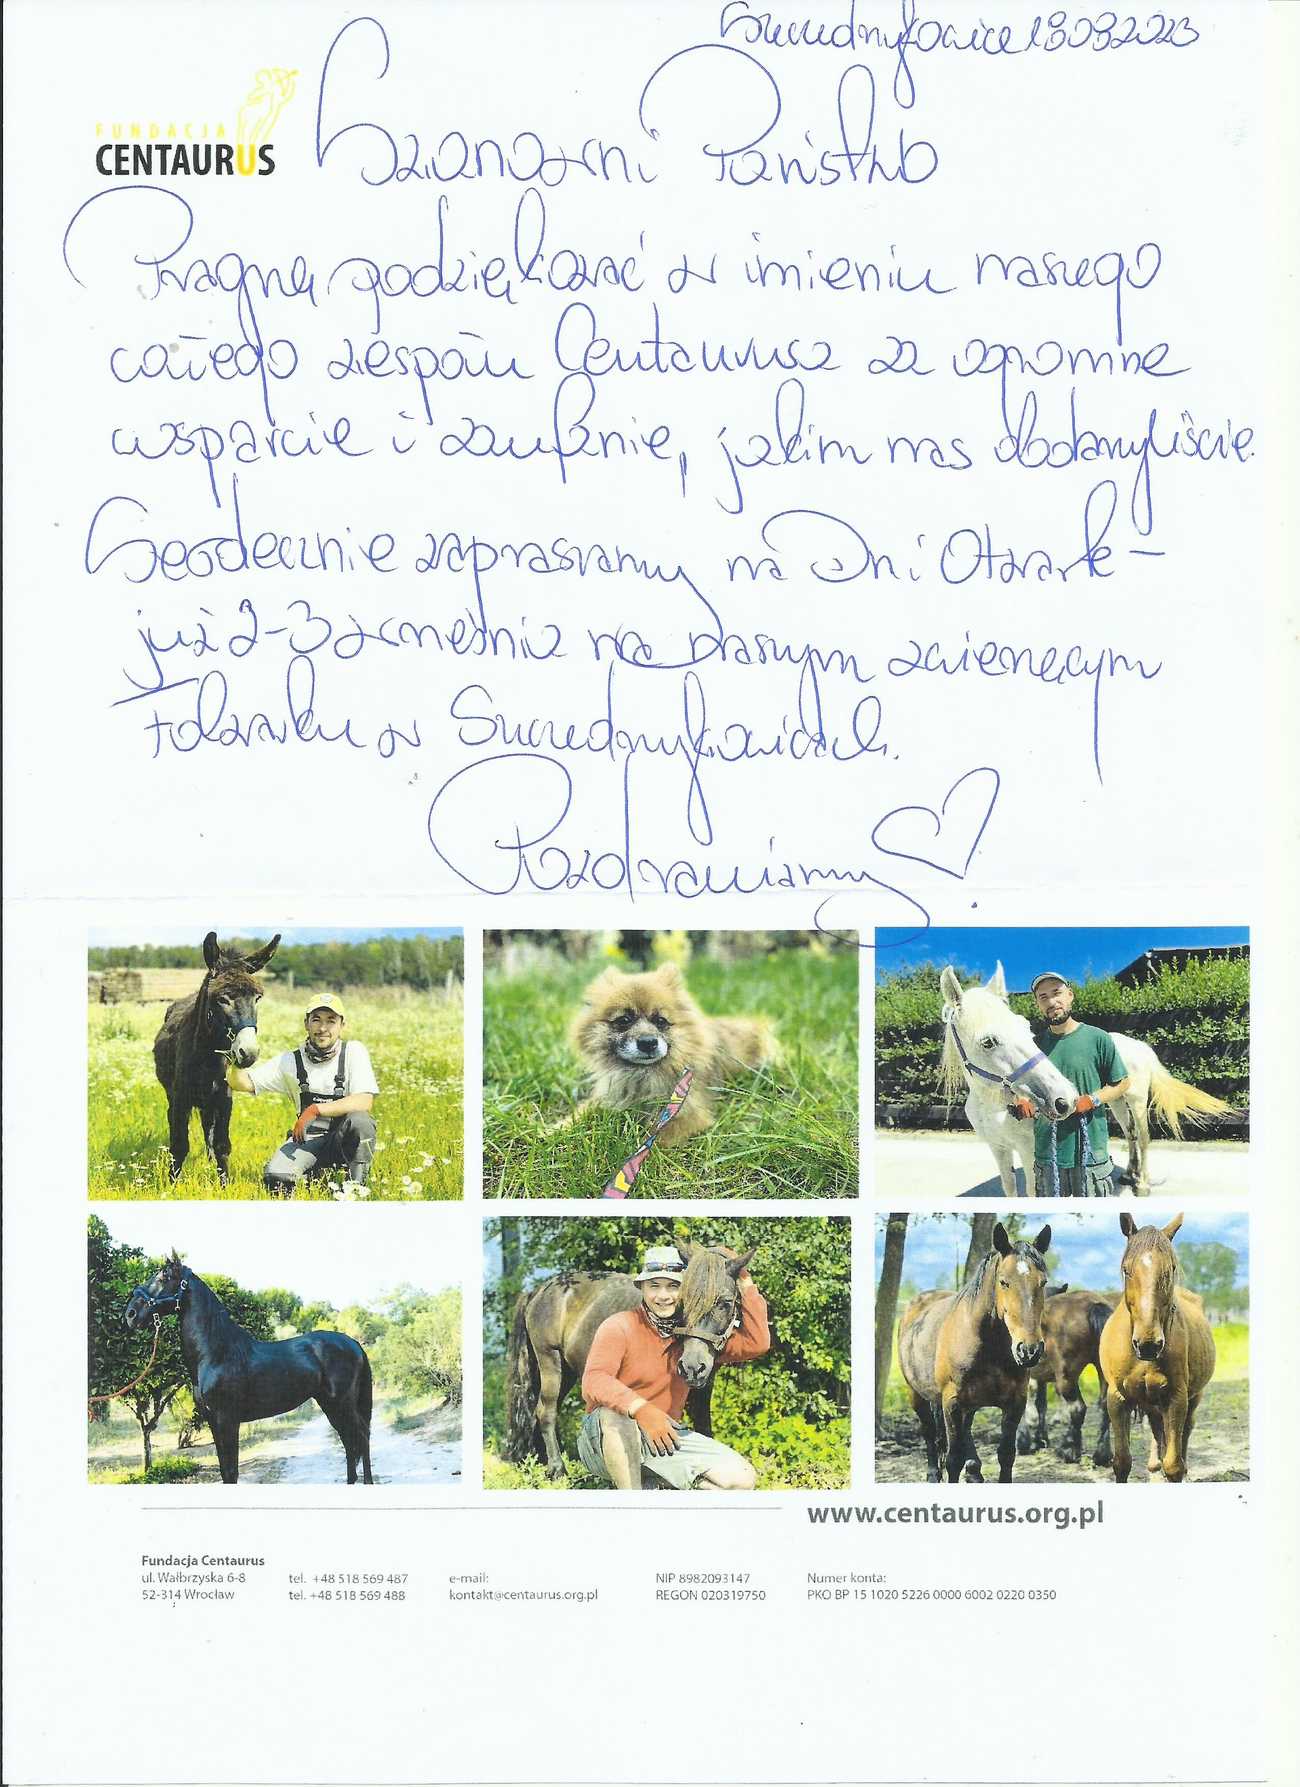 Szczedrzykowice 18082023
FUNDACJA
CENTAURUS
Szanowni Państwo
Pragnę podziękować w imieniu naszego
całego zespołu Centaurusa za ogromne
wsparcie i zaufanie, jakim nas obdarzyliście.
Serdecznie zapraszamy na Dni Otwarte -
już 2-3 września na naszym zwierzęcym
folwarku w Szczedrzykowicach.
Pozdrawiamy
www.centaurus.org.pl
Fundacja Centaurus
ul. Wałbrzyska 6-8 tel. +48 518 569 487 e-mail: NIP 8982093147 Numer konta:
52-314 Wrocław tel. +48 518 569 488 kontakt@centaurus.org.pl REGON 020319750 PKO BP 15 1020 5226 0000 6002 0220 0350